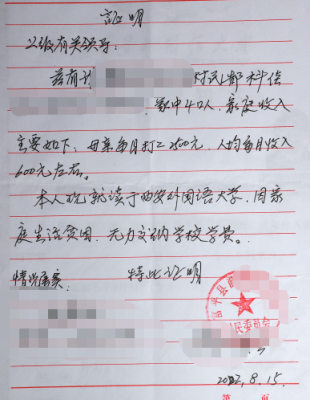 证明
上级有关领导:
兹有我
村民
家中4口人,家庭收入
主要如下,母亲每月打工2400元,人均每月收入
600元左右。
本人现就读于西安外国语大学,因家
庭生活贫困,无力交纳学校学费。
特此证明
情况属实
富平县
民委员会
2022.8.15
第 页